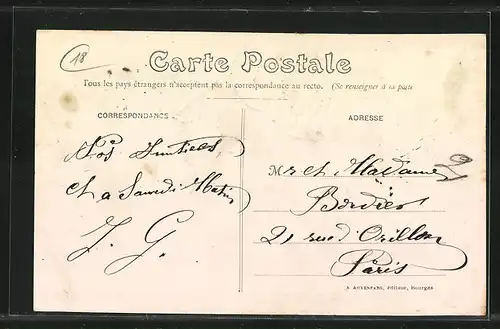 18
Carte Postale
Tous les pays étrangers n'acceptent pas la correspondance au recto. (Se renseigner à la poste
CORRESPONDANCE
ADRESSE
Nos Amitiées
et a Samedi Matin
J. G.
Mr et Madame
Bordier
21 rue d'Orillon
Paris
A. AUXENFANS, éditeur, Bourges